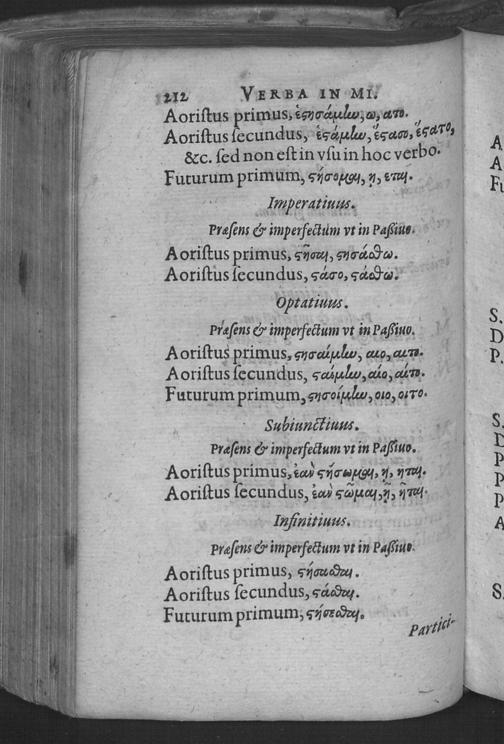 212 VERBA IN MI.
Aoristus primus, ἐϛησάμην, ω, ατο.
Aoristus secundus, ἐϛάμην, ἔϛασο, ἔϛατο,
&c. sed non est in vsu in hoc verbo.
Futurum primum, ϛήσομαι, ῃ, εται.
Imperatiuus.
Præsens & imperfectum vt in Paßiuo.
Aoristus primus, ϛῆσαι, ϛησάσθω.
Aoristus secundus, ϛάσο, ϛάσθω.
Optatiuus.
Præsens & imperfectum vt in Paßiuo.
Aoristus primus, ϛησαίμην, αιο, αιτο.
Aoristus secundus, ϛαίμην, αῖο, αῖτο.
Futurum primum, ϛησοίμην, οιο, οιτο.
Subiunctiuus.
Præsens & imperfectum vt in Paßiuo.
Aoristus primus, ἐὰν ϛήσωμαι, ῃ, ηται.
Aoristus secundus, ἐὰν ϛῶμαι, ῇ, ῆται.
Infinitiuus.
Præsens & imperfectum vt in Paßiuo.
Aoristus primus, ϛήσασθαι.
Aoristus secundus, ϛάσθαι.
Futurum primum, ϛήσεσθαι.
Partici-
A
A
Fu
S.
D
P.
S.
D
P
P
P
A
S